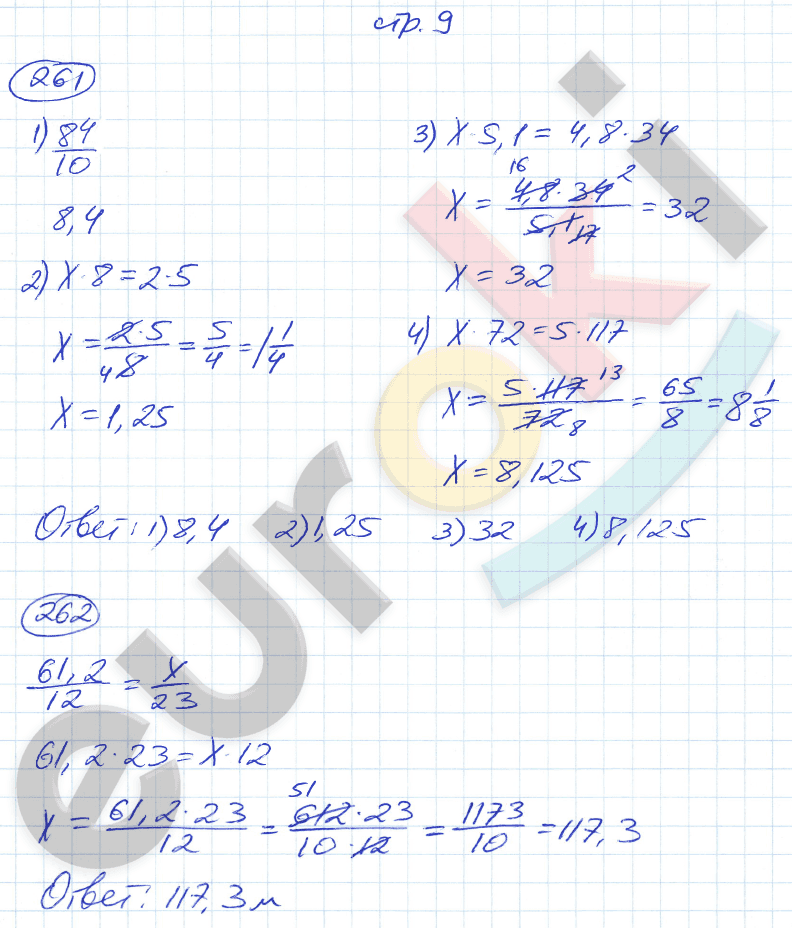 стр. 9
261
1) 84/10
8,4
2) x·8=2·5
x = 2·5/8 4 = 5/4 = 1 1/4
x = 1,25
3) x·5,1 = 4,8·34
x = 16 4,8·34 2 / 5,1 17 = 32
x = 32
4) x·72=5·117
x = 5·117 13 / 72 8 = 65/8 = 8 1/8
x = 8,125
Ответ: 1) 8,4 2) 1,25 3) 32 4) 8,125
262
61,2/12 = x/23
61,2·23=x·12
x = 61,2·23/12 = 51 612·23/10·12 = 1173/10 = 117,3
Ответ: 117,3 м
euroki